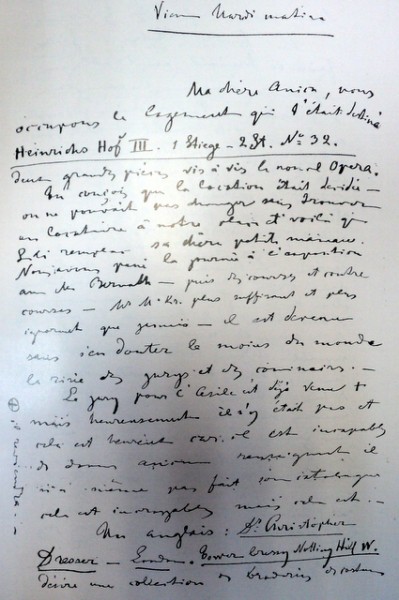 Vienne Mardi matin
Ma chère Anica, nous
occupons le logement qui t'était destiné
Heinrichs Hof III. 1 Stiege - 2 St. No 32.
deux grandes pièces vis à vis le nouvel Opera.
Tu conçois que la location était décidée -
on ne pouvait pas changer sans trouver
un locataire à notre place et voilà qui
sa chère petite maman.
Nous avons passé la journée à l'exposition
puis des courses et contre
courses - Mr M. Kr. plus suffisant et plus
ignorant que jamais - il est devenu
sans s'en douter le moins du monde
la risée des jurys et des commissaires. -
Le jury pour l' est déjà venu
mais heureusement il n'y était pas et
cela est heureux car il est incapable
de donner aucun renseignement il
n'a même pas fait son catalogue
cela est incroyable mais cela est. -
Un anglais : Dr Christopher
Dresser - London. Tower Notting Hill W.
désire une collection de broderies de costumes